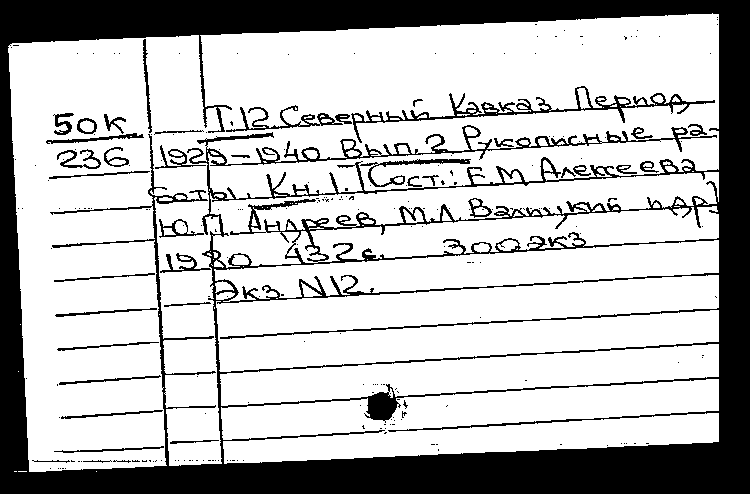 50К Т.12 Северный Кавказ. Период
236 1929-1940 Вып. 2 Рукописные ра-
боты. Кн. 1. [Сост.: Е.М. Алексеева,
Ю.П. Андреев, М.Л. и др.]
1980 432 с. 300 экз
Экз. N12.